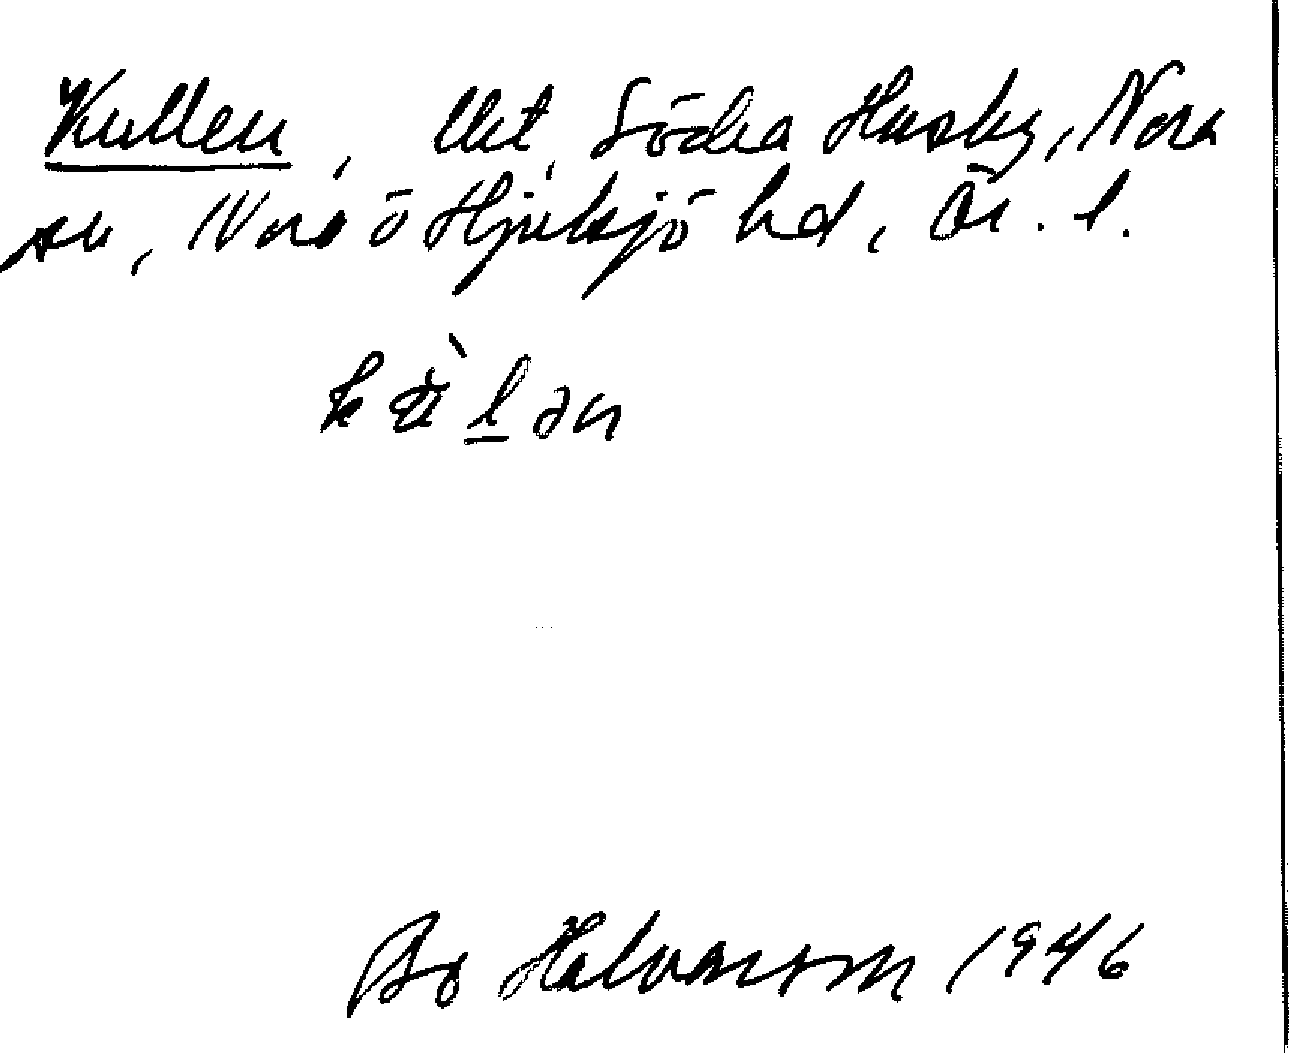 Kullen, lht, Södra Husby, Nora
sn, Nora ö Hjulsjö hd, Ör. l.
Bo Halvarsson 1946